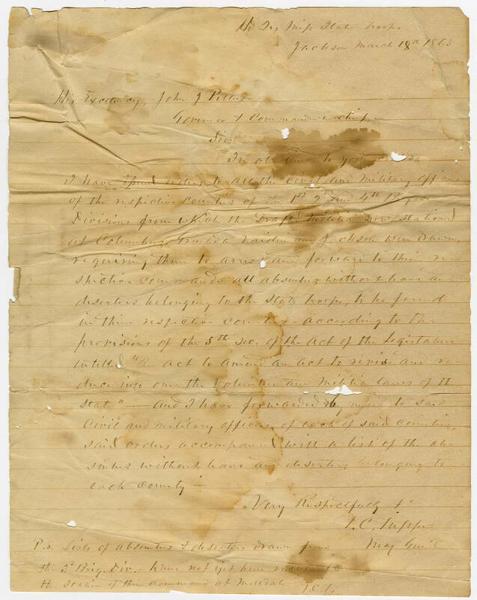 Hd Qrs Miss State Troops
Jackson March 18th 1863
His Excellency, John J Pettus
Governor & Commander in chief
Sir
In obedience to your
I have issued orders to all the civil and military officers
of the respective counties of the 1st 2d and 4th Brigade
Divisions from which the Drafted Militia now stationed
at Columbus Grenada Vaiden and Jackson were drawn,
requiring them to arrest and forward to their re-
spective commands all absentees without leave and
deserters belonging to the State troops, to be found
in their respective counties according to the
provisions of the 5th sec. of the Act of the Legislature
intitled "An act to amend an act to revise and re-
duce into one the Volunteer and Militia laws of the
State" — And I have forwarded by mail to said
Civil and military officers of each of said counties,
said orders accompanied with a list of the ab-
sentees without leave and deserters belonging to
each County —
Very Respectfully &c
T. C. Tupper
Maj Genl
P.S. Lists of absentees & deserters drawn from
the 3d Brig. Div. have not yet been
the of the command at Meridian
T.C.T.